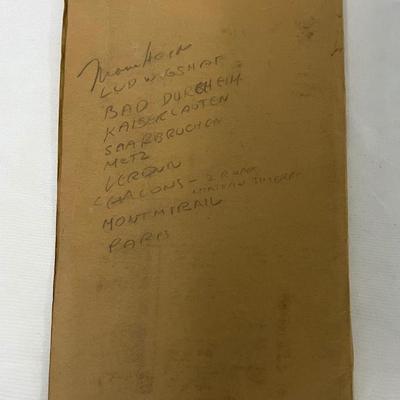 Mannheim
LUDWIGSHAF
BAD DURCHEIM
KAISERLAUTEN
SAARBRUCHEN
METZ
VERDUN
CHALONS -
MONTMIRAIL
PARIS